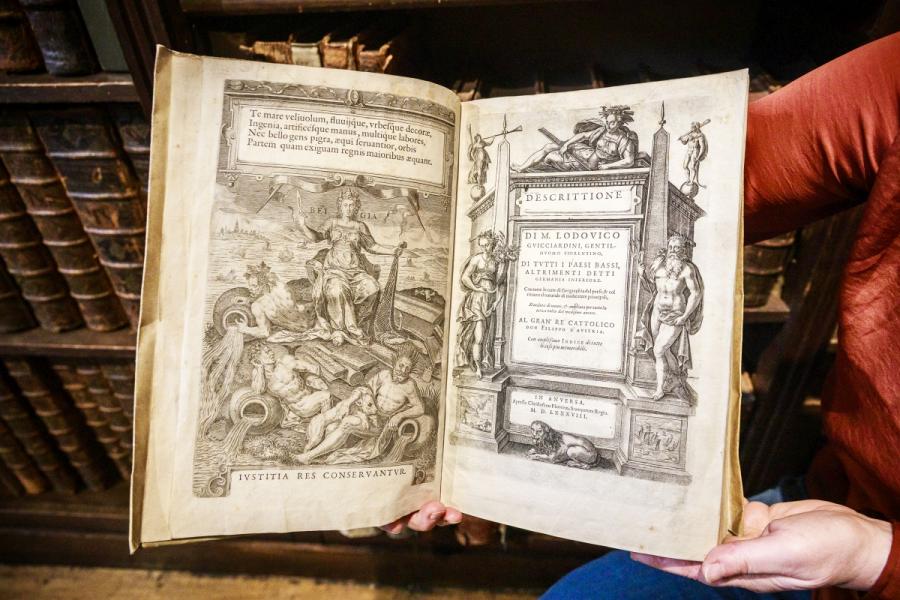 Te mare veliuolum, fluuijque, vrbesque decoræ,
Ingenia, artificesque manus, multique labores,
Nec bello gens pigra, æqui seruantior, orbis
Partem quam exiguam regnis maioribus æquant.
BELGIA
IVSTITIA RES CONSERVANTVR
DESCRITTIONE
DI M. LODOVICO
GVICCIARDINI, GENTIL-
HVOMO FIORENTINO,
DI TVTTI I PAESI BASSI,
ALTRIMENTI DETTI
GERMANIA INFERIORE.
Con tutte le carte di Geographia del paese, & col
ritratto naturale di molte terre principali;
Riueduta di nuouo, & ampliata per tutto la
terza volta dal medesimo autore.
AL GRAN' RE CATTOLICO
DON FILIPPO D'AVSTRIA.
Con amplissimo INDICE di tutte
le cose piu memorabili.
IN ANVERSA,
Apresso Christofano Plantino, Stampatore Regio.
M. D. LXXXVIII.